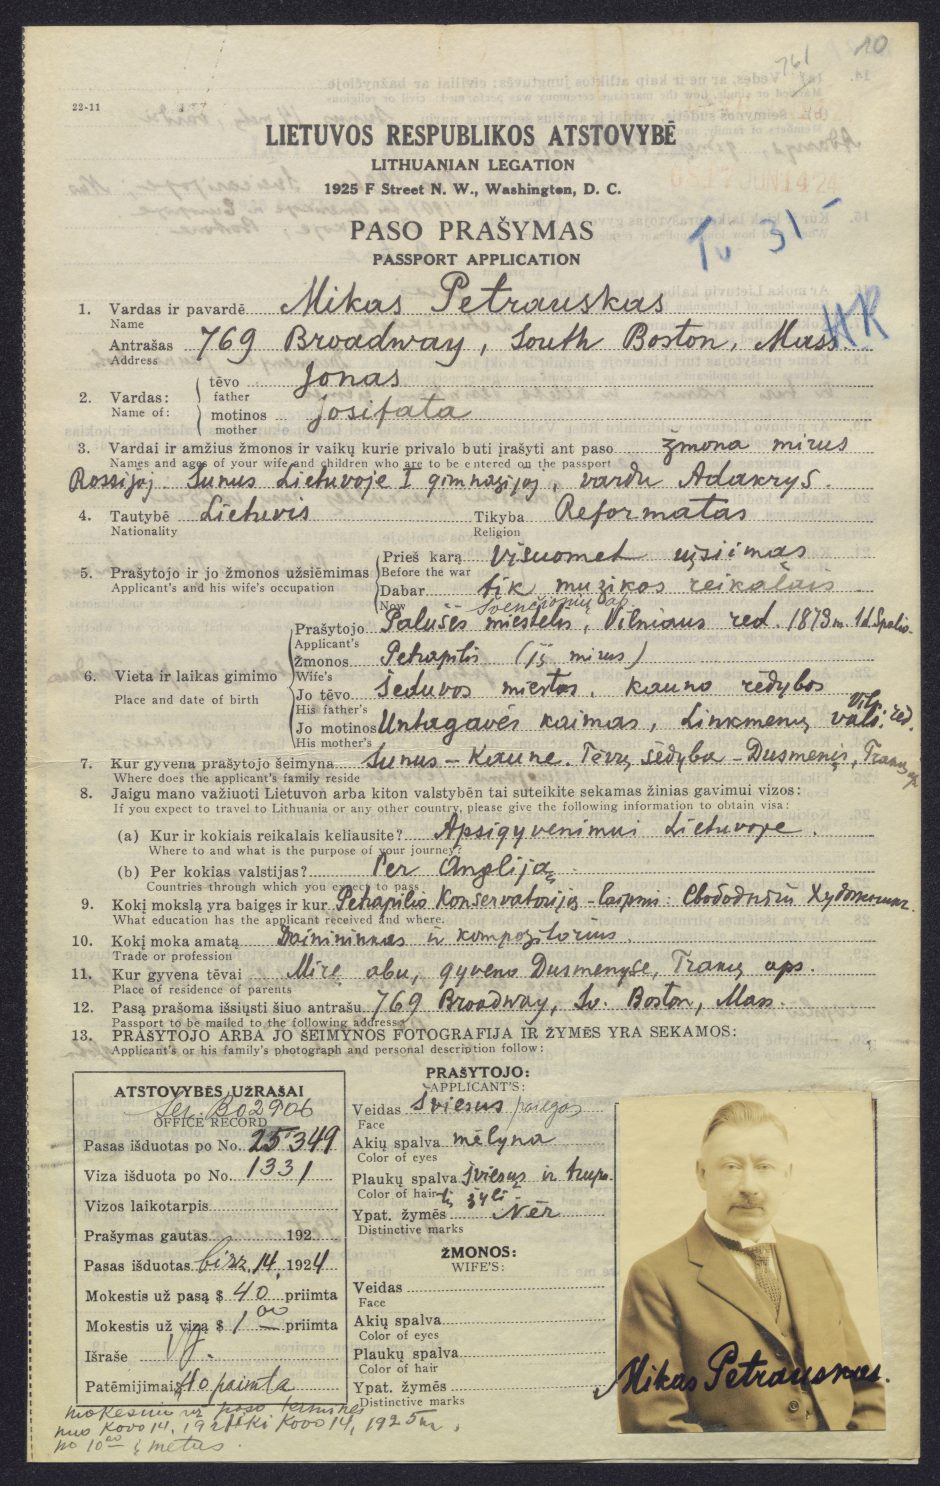 10
761
22-11
LIETUVOS RESPUBLIKOS ATSTOVYBĖ
LITHUANIAN LEGATION
1925 F Street N. W., Washington, D. C.
0817 JUN 14 24
PASO PRAŠYMAS
PASSPORT APPLICATION
Tv 31-
HR
1. Vardas ir pavardė Mikas Petrauskas
Name
Antrašas 769 Broadway, South Boston, Mass.
Address
2. Vardas: tėvo Jonas
father
Name of: motinos Josifata
mother
3. Vardai ir amžius žmonos ir vaikų kurie privalo buti įrašyti ant paso žmona mirus
Names and ages of your wife and children who are to be entered on the passport
Rossijoj. Sunus Lietuvoje I gimnazijoj, vardu Adakrys.
4. Tautybė Lietuvis Tikyba Reformatas
Nationality Religion
5. Prašytojo ir jo žmonos užsiėmimas Prieš karą Visuomet užsiimas
Applicant's and his wife's occupation Before the war
Dabar tik muzikos reikalais
Now
Švenčionių ap.
Prašytojo Palušės miestelis, Vilniaus red. 1873 m. 1 d. Spalio.
Applicant's
6. Vieta ir laikas gimimo žmonos Petrapilis (jį mirus)
Place and date of birth Wife's
Jo tėvo Šeduvos miestas, Kauno rėdybos
His father's
Jo motinos Untagavės kaimas, Linkmenų vals. Viln. rėd.
His mother's
7. Kur gyvena prašytojo šeimyna Sunus - Kaune. Tėvų sėdyba - Dusmenis, Trakų ap.
Where does the applicant's family reside
8. Jaigu mano važiuoti Lietuvon arba kiton valstybėn tai suteikite sekamas žinias gavimui vizos:
If you expect to travel to Lithuania or any other country, please give the following information to obtain visa:
(a) Kur ir kokiais reikalais keliausite? Apsigyvenimui Lietuvoje.
Where to and what is the purpose of your journey?
(b) Per kokias valstijas? Per Angliją.
Countries through which you expect to pass
9. Kokį mokslą yra baigęs ir kur Petrapilio Konservatorijos - laipsni: Свободный Художник.
What education has the applicant received and where.
10. Kokį moka amatą Dainininkas ir kompozitorius.
Trade or profession
11. Kur gyvena tėvai Mirę abu, gyveno Dusmenyse, Trakų aps.
Place of residence of parents
12. Pasą prašoma išsiųsti šiuo antrašu 769 Broadway, So. Boston, Mass.
Passport to be mailed to the following address:
13. PRAŠYTOJO ARBA JO ŠEIMYNOS FOTOGRAFIJA IR ŽYMĖS YRA SEKAMOS:
Applicant's or his family's photograph and personal description follow:
ATSTOVYBĖS UŽRAŠAI
Ser. B02906
OFFICE RECORD
Pasas išduotas po No. 25349
Viza išduota po No. 1331
Vizos laikotarpis
Prašymas gautas 192
Pasas išduotas birž. 14, 1924
Mokestis už pasą $ 40 priimta
Mokestis už vizą $ 1 00 priimta
Išraše VJ.
Patėmijimai $10 paimta
mokesnis už paso terminės
nuo Kovo 14, 1924 iki Kovo 14, 1925 m,
po 10 00 į metus.
PRAŠYTOJO:
APPLICANT'S:
Veidas Šviesus pailgas
Face
Akių spalva mėlyna
Color of eyes
Plaukų spalva Šviesus ir trupu-
Color of hair tį žyli
Ypat. žymės Nėr
Distinctive marks
ŽMONOS:
WIFE'S:
Veidas
Face
Akių spalva
Color of eyes
Plaukų spalva
Color of hair
Ypat. žymės
Distinctive marks
Mikas Petrauskas.